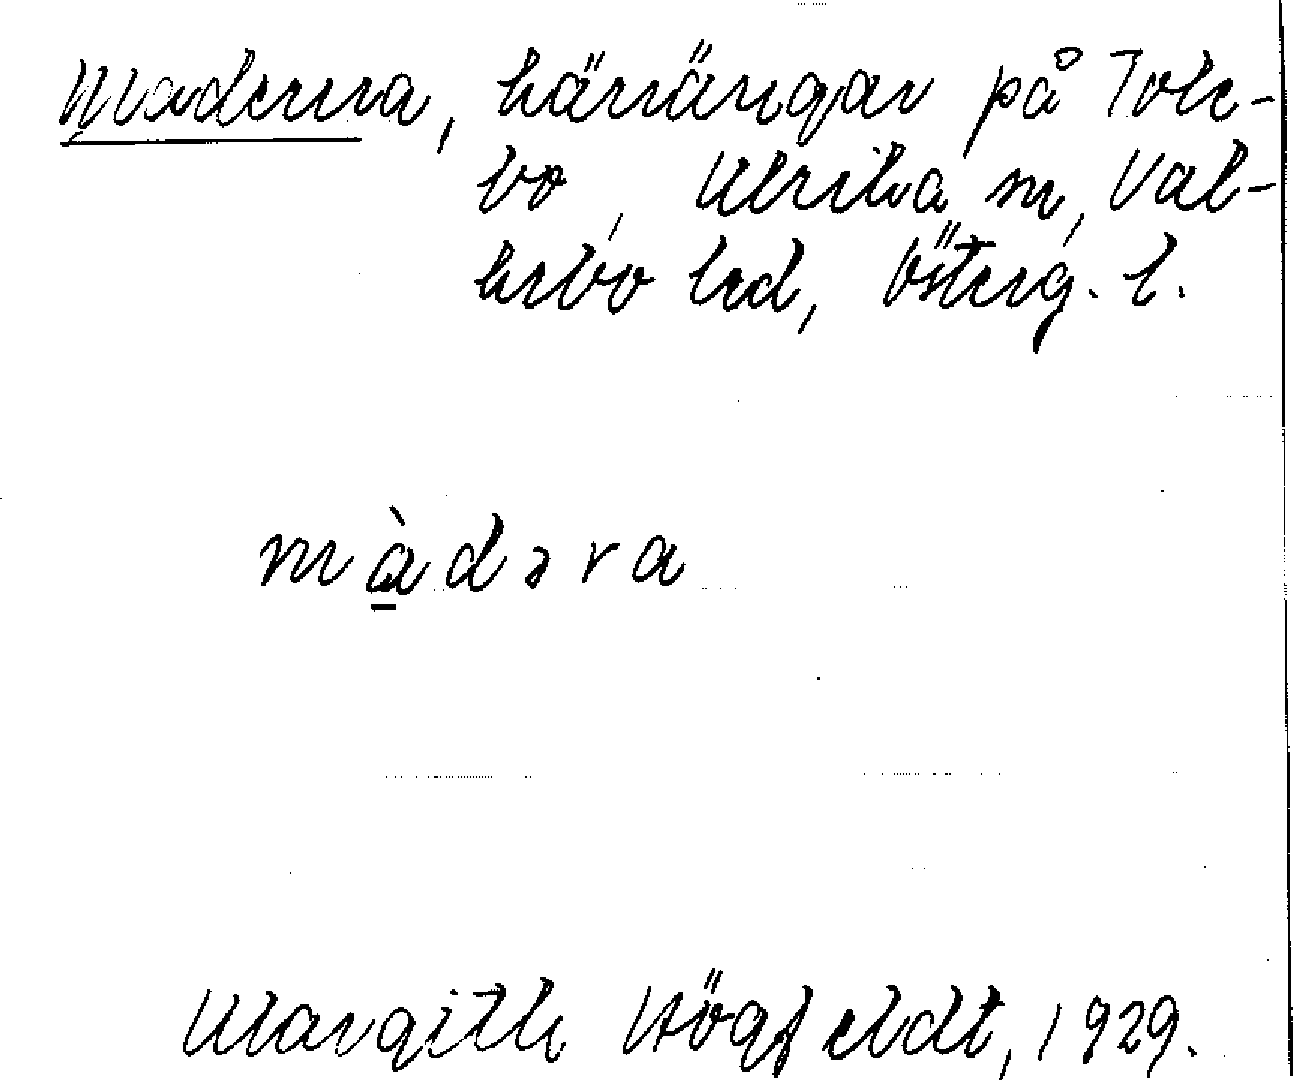 Maderna, kärrängar på Tole-
bo, Ulrika sn, Val-
kebo hd, Österg. l.
màdəra
Margith Högfeldt, 1929.